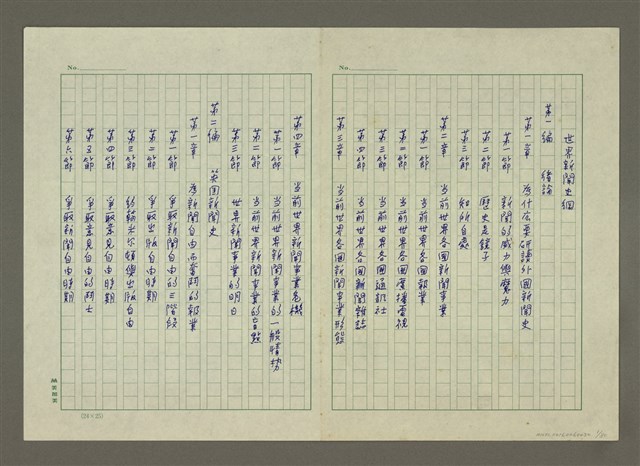 No.
世界新聞史綱
第一編 緒論
第一章 為什麼要研讀外國新聞史
第一節 新聞的威力與魔力
第二節 歷史是鏡子
第三節 知所自處
第二章 當前世界各國新聞事業
第一節 當前世界各國報業
第二節 當前世界各國廣播電視
第三節 當前世界各國通訊社
第四節 當前世界各國新聞雜誌
第三章 當前世界各國新聞事業形態
No.
第四章 當前世界新聞事業危機
第一節 當前世界新聞事業的一般情勢
第二節 當前世界新聞事業的盲點
第三節 世界新聞事業的明日
第二編 英國新聞史
第一章 為新聞自由而奮鬥的報業
第一節 爭取新聞自由的三階段
第二節 爭取出版自由時期
第三節 約翰米爾頓與出版自由
第四節 爭取意見自由時期
第五節 爭取意見自由的鬥士
第六節 爭取新聞自由時期
(24×25)